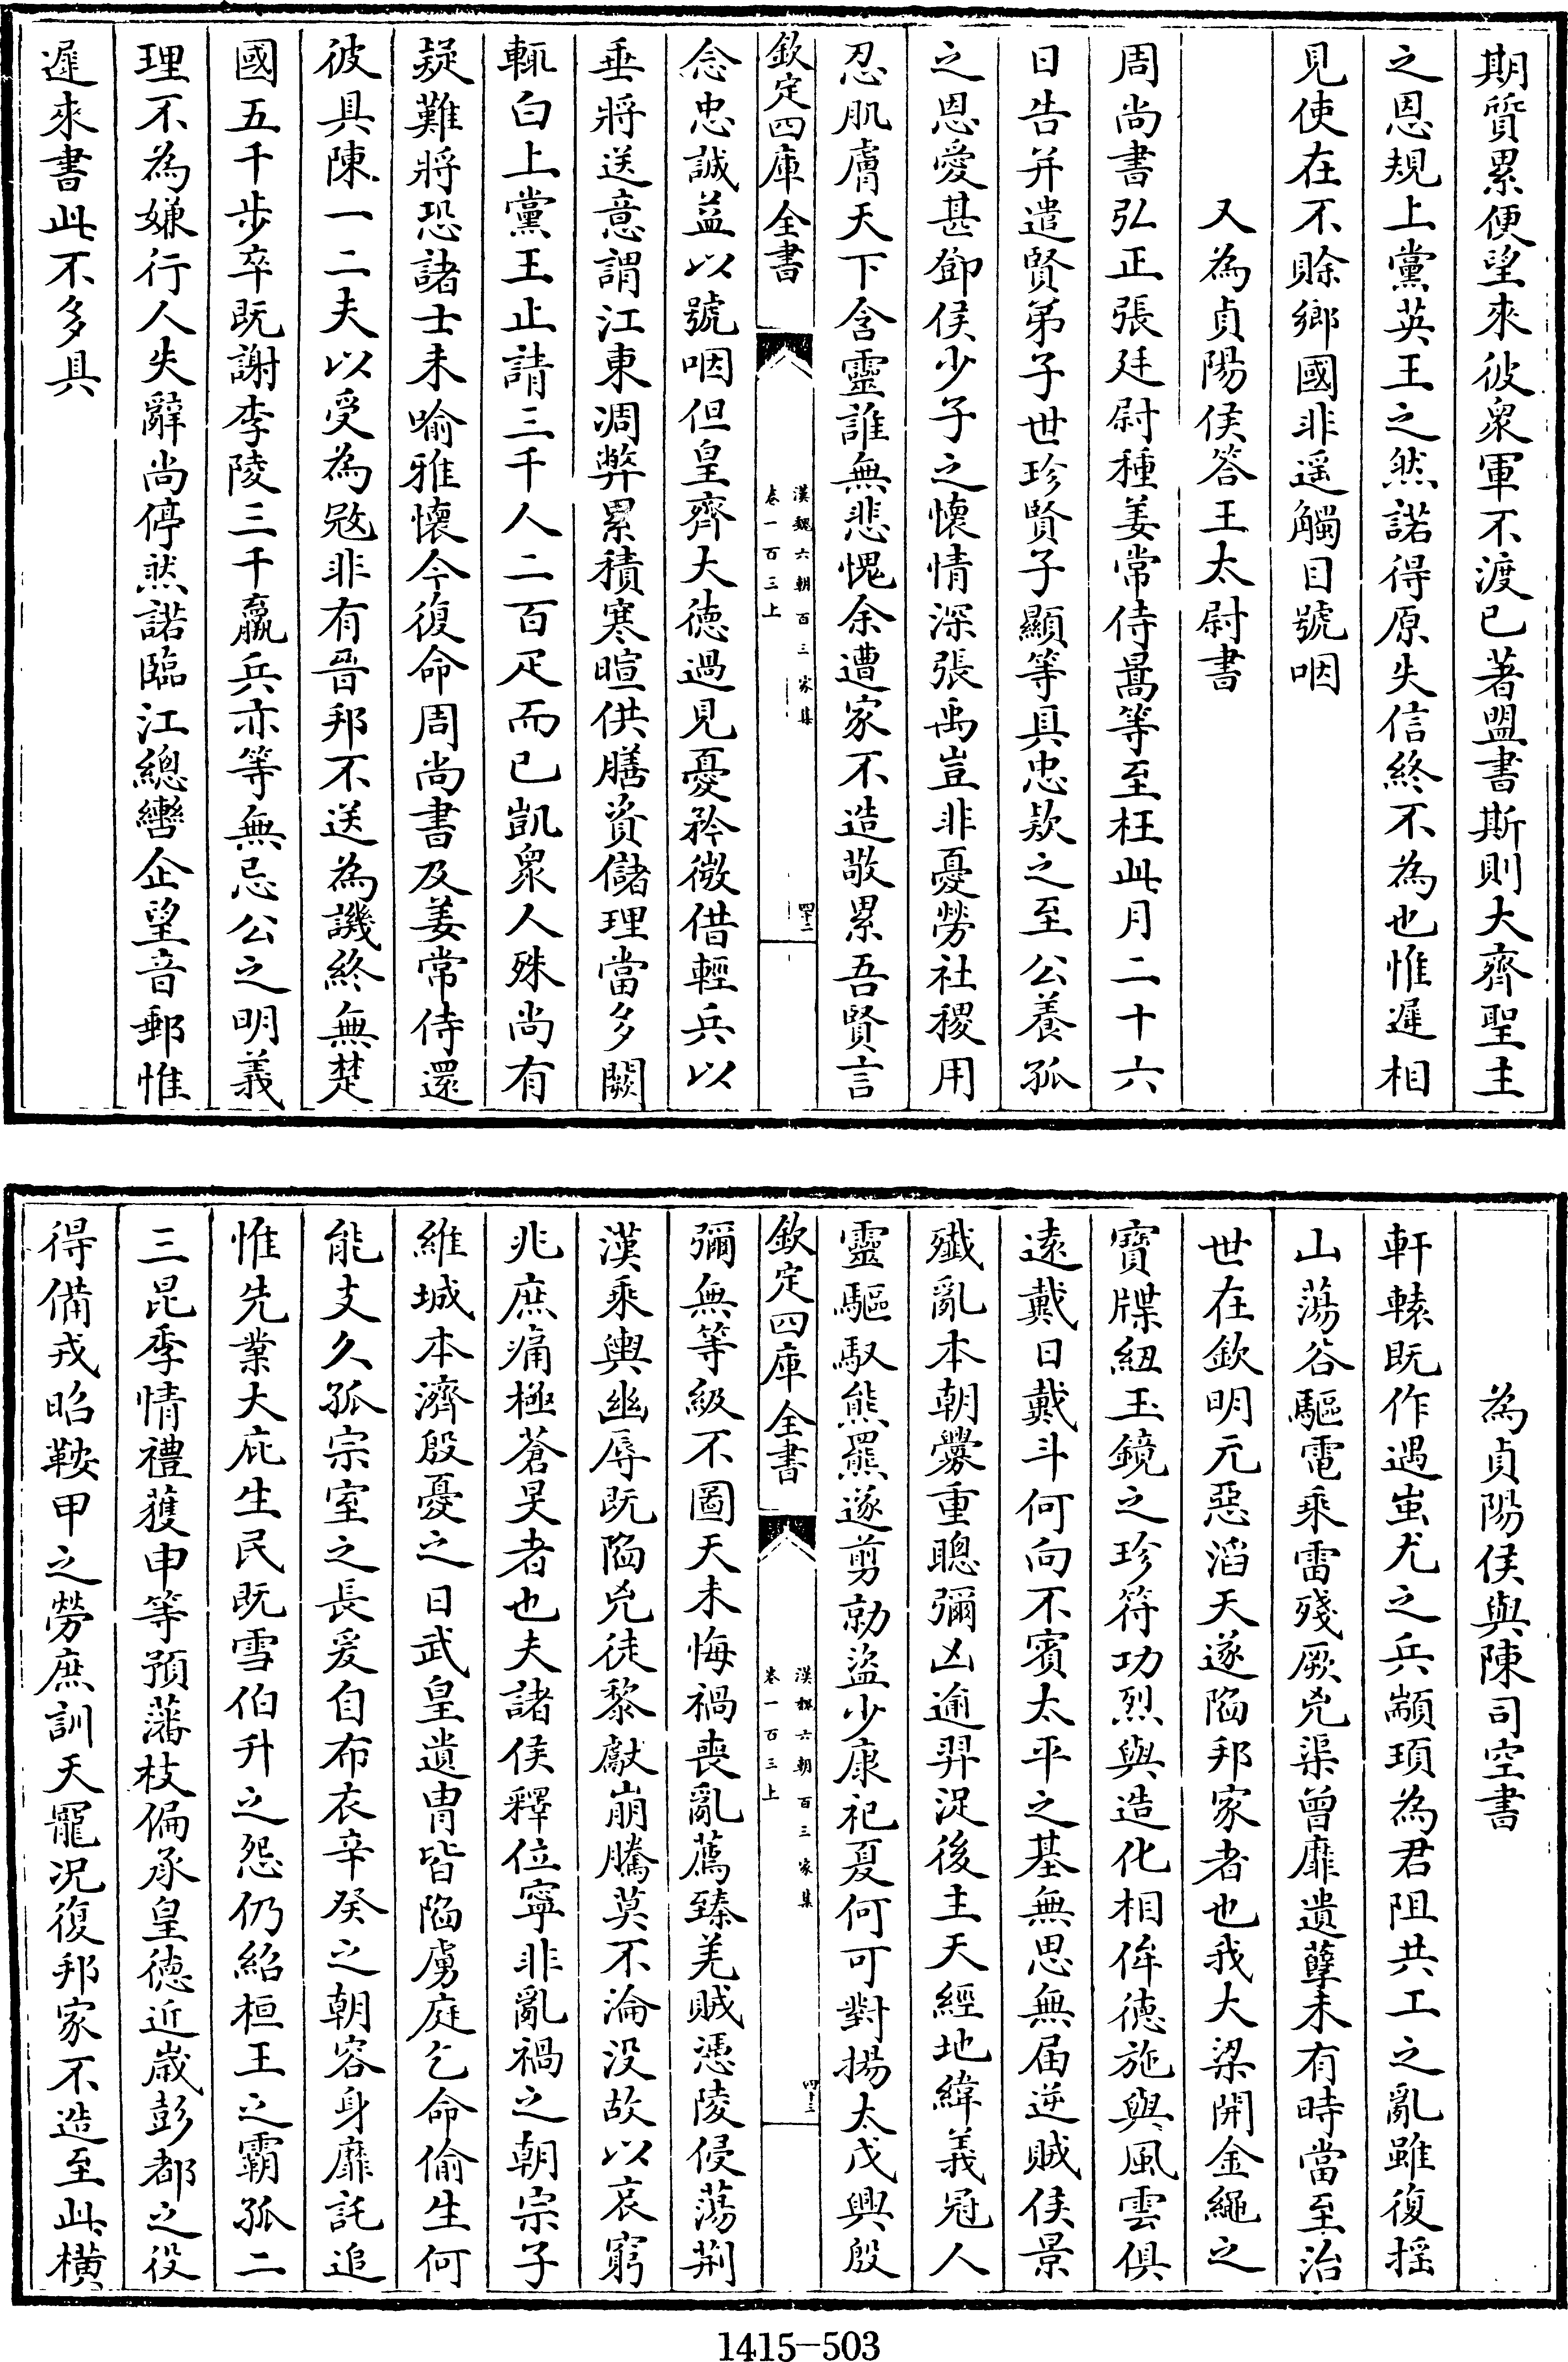 期質累便望來彼衆軍不渡已著盟書斯則大齊聖主
之恩規上黨英王之然諾得原失信終不為也惟遲相
見使在不賒鄉國非遥觸目號咽
又為貞陽侯答王太尉書
周尚書弘正張廷尉種姜常侍暠等至枉此月二十六
日告并遣賢弟子世珍賢子顯等具忠欵之至公養孤
之恩愛甚鄧侯少子之懷情深張禹豈非憂勞社稷用
忍肌膚天下含靈誰無悲愧余遭家不造敬累吾賢言
欽定四庫全書
漢魏六朝百三家集
卷一百三上
四十二
念忠誠益以號咽但皇齊大德過見憂矜微借輕兵以
垂將送意謂江東凋弊累積寒暄供膳資儲理當多闕
輒白上黨王止請三千人二百疋而已凱衆人殊尚有
疑難將恐諸士未喻雅懷今復命周尚書及姜常侍還
彼具陳一二夫以受為敓非有晉邦不送為譏終無楚
國五千步卒既謝李陵三千羸兵亦等無忌公之明義
理不為嫌行人失辭尚停然諾臨江總轡企望音郵惟
遲來書此不多具
為貞陽侯與陳司空書
軒轅既作遇蚩尤之兵顓頊為君阻共工之亂雖復揺
山蕩谷驅電乘雷殘厥兇渠曾靡遺孽未有時當至治
世在欽明元惡滔天遂陷邦家者也我大梁開金繩之
寶牒紐玉鏡之珍符功烈與造化相侔德施與風雲俱
遠戴日戴斗何向不賓太平之基無思無届逆賊侯景
殲亂本朝釁重聰彌凶逾羿浞後主天經地緯義冠人
靈驅馭熊羆遂剪勍盜少康祀夏何可對揚太戊興殷
欽定四庫全書
漢魏六朝百三家集
卷一百三上
四十三
彌無等級不圖天未悔禍喪亂薦臻羌賊憑陵侵蕩荆
漢乘輿幽辱既陷兇徒黎獻崩騰莫不淪没故以哀窮
兆庶痛極蒼旻者也夫諸侯釋位寧非亂禍之朝宗子
維城本濟殷憂之日武皇遺胄皆陷虜庭乞命偷生何
能支久孤宗室之長爰自布衣辛癸之朝容身靡託追
惟先業大庇生民既雪伯升之怨仍紹桓王之霸孤二
三昆季情禮獲申等預藩枝偏承皇德近歲彭都之役
得備戎昭鞍甲之勞庶訓天寵况復邦家不造至此横
1415-503